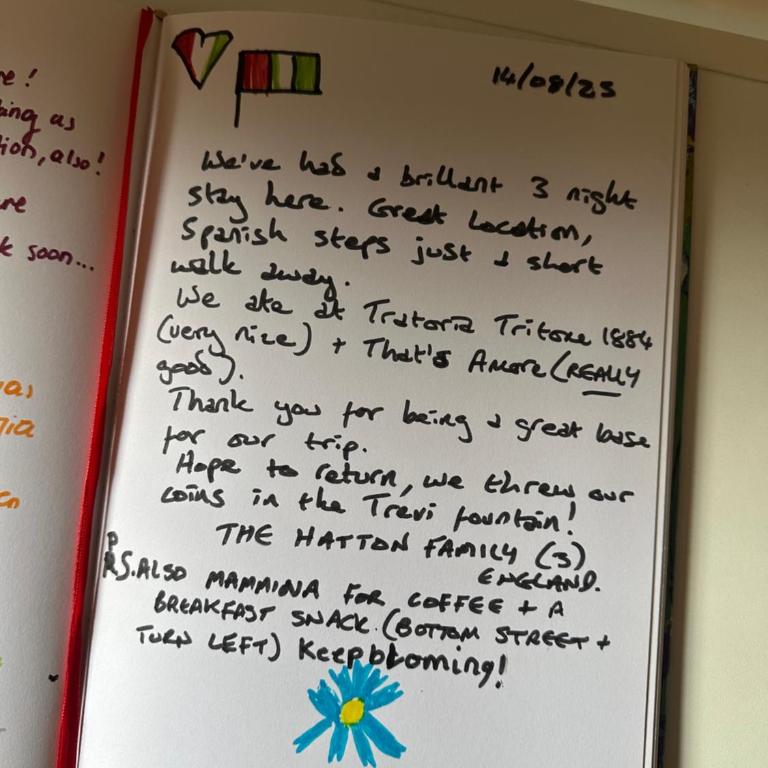 e!
ing as
tion, also!
re
k soon...
as
nia
en
14/08/25
We've had a brilliant 3 night
stay here. Great Location,
Spanish steps just a short
walk away.
We ate at Tratoria Tritone 1884
(very nice) + That's Amore (REALLY
good).
Thank you for being a great base
for our trip.
Hope to return, we threw our
coins in the Trevi fountain!
THE HATTON FAMILY (3)
ENGLAND.
PS. ALSO MAMMINA FOR COFFEE + A
BREAKFAST SNACK. (BOTTOM STREET +
TURN LEFT) Keep blooming!